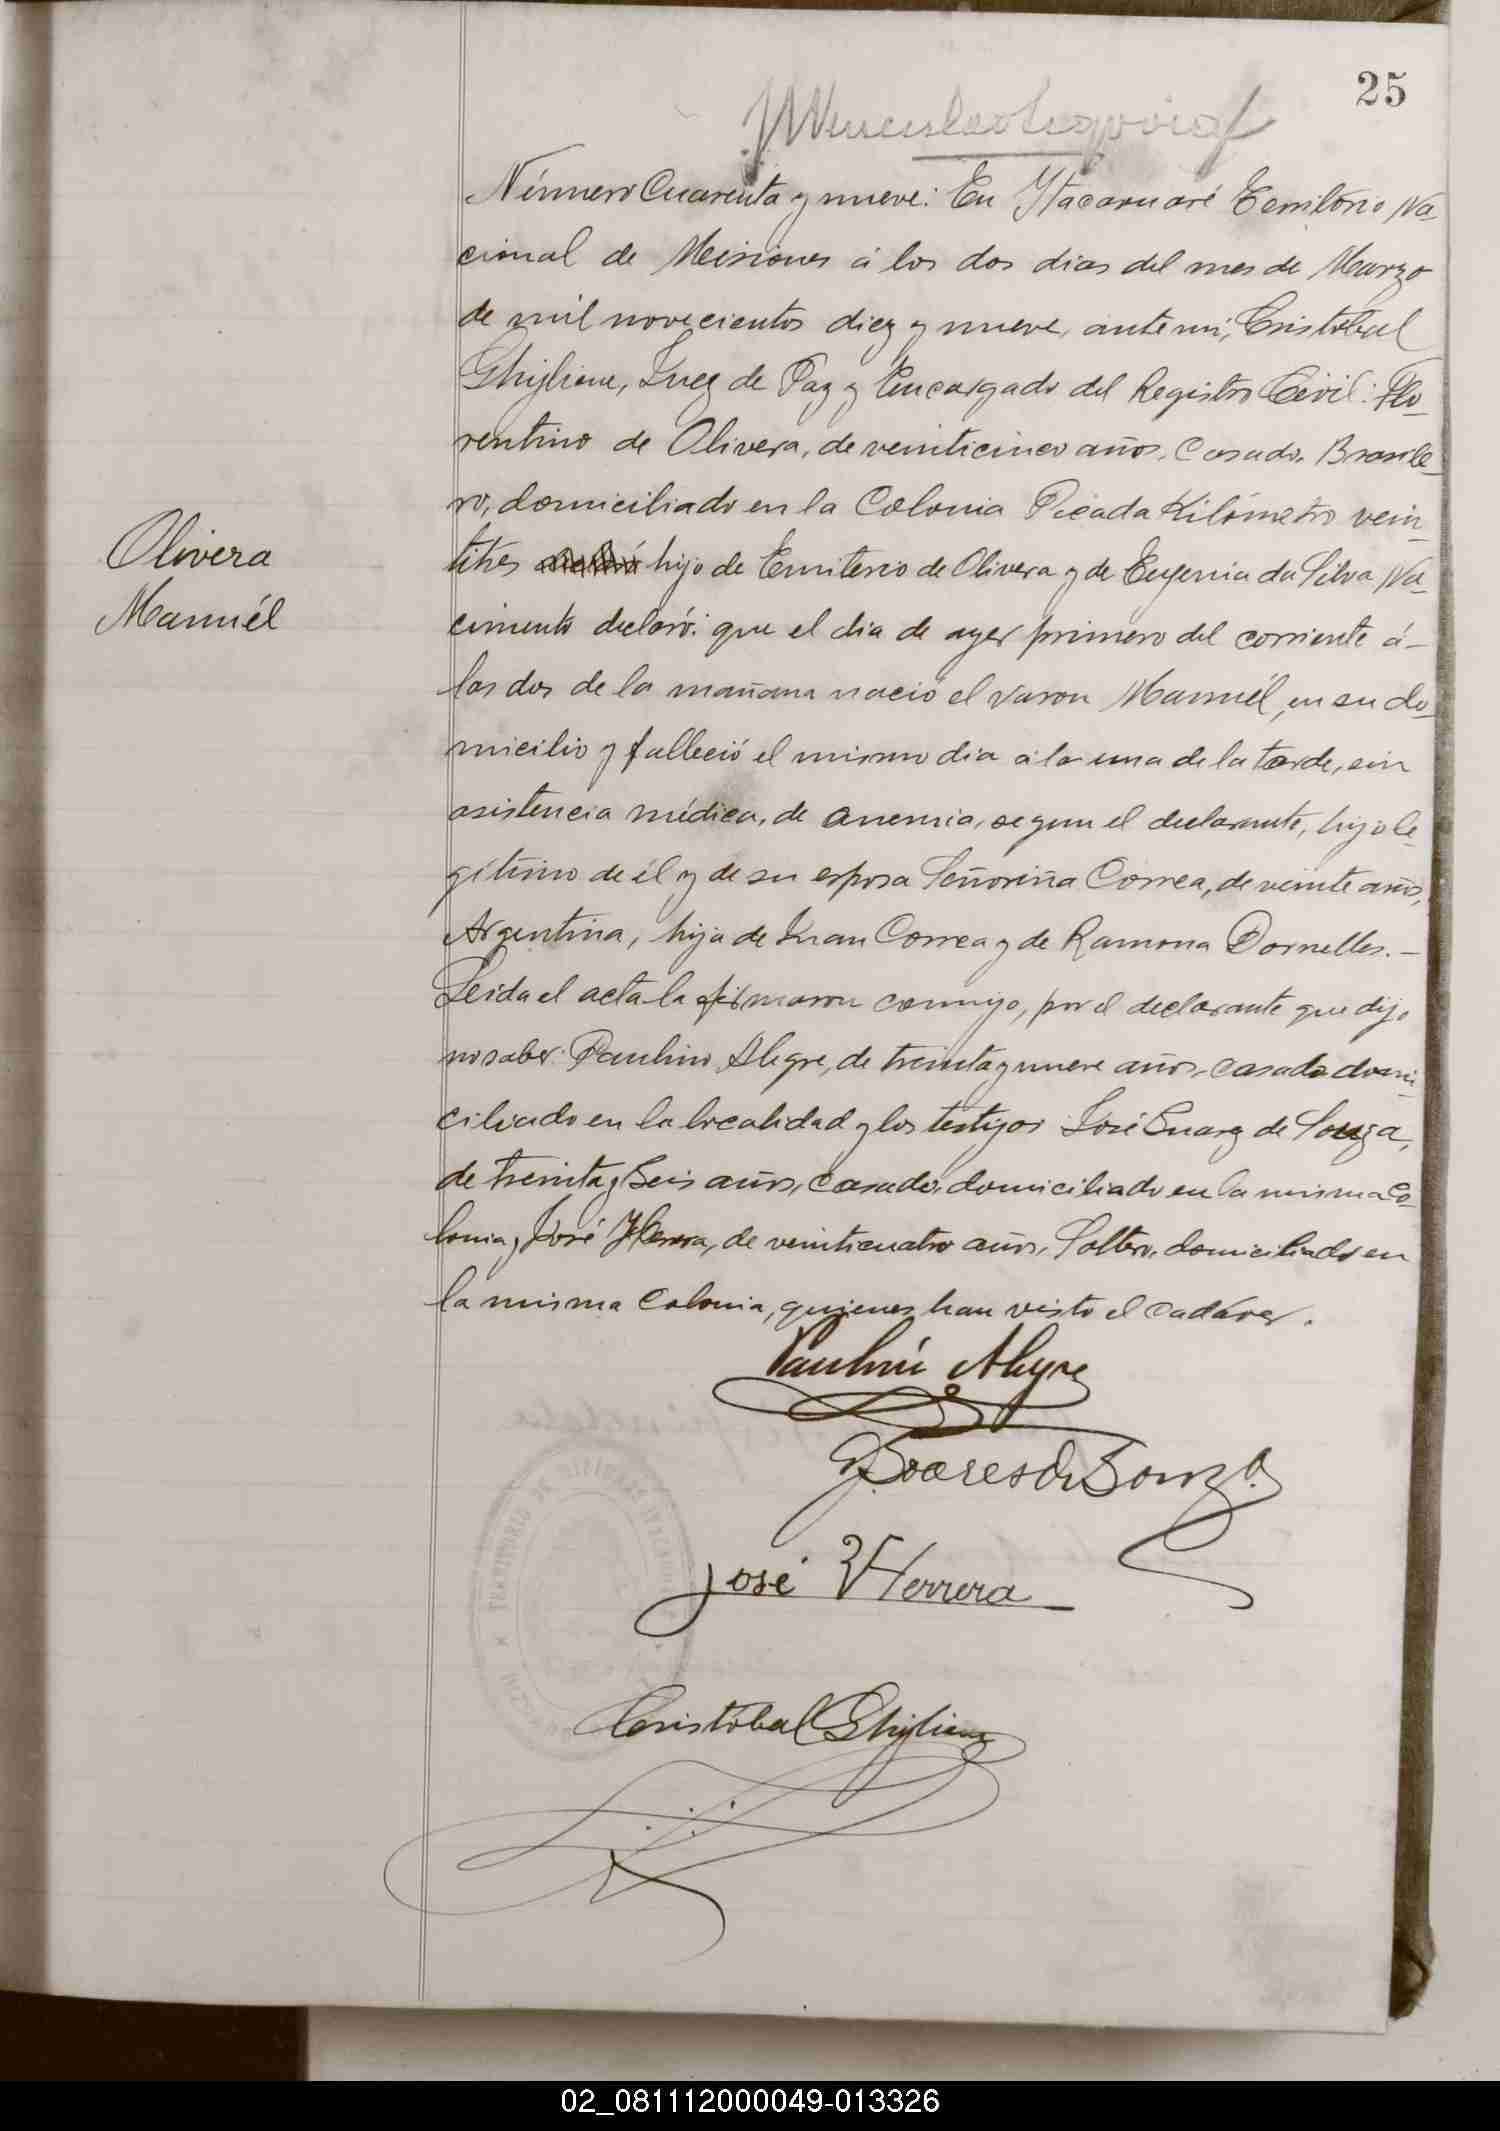 25
Número Cuarenta y nueve: En Ytacaruaré Territorio Na-
cional de Misiones á los dos dias del mes de Marzo
de mil novecientos diez y nueve, ante mi, Cristobal
Ghiglione, Juez de Paz y Encargado del Registro Civil: Flo-
rentino de Olivera, de veinticinco años, Casado, Brasile-
ro, domiciliado en la Colonia Picada Kilómetro vein-
titres hijo de Emiterio de Olivera y de Eugenia da Silva Na-
cimento declaró: que el dia de ayer primero del corriente á-
las dos de la mañana nació el varon Manuél, en su do-
micilio y falleció el mismo dia a la una de la tarde, sin
asistencia médica, de anemia, segun el declarante, hijo le-
gítimo de él y de su esposa Señoriña Correa, de veinte años,
Argentina, hija de Juan Correa y de Ramona Dornelles.-
Leida el acta la firmaron conmigo, por el declarante que dijo
no saber: Paulino Alegre, de treinta y nueve años, casado domi-
ciliado en la localidad y los testigos José Suarez de Souza,
de treinta y Seis años, Casado, domiciliado en la misma Co-
lonia y José Herrera, de veinticuatro años, Soltero, domiciliado en
la misma Colonia, quienes han visto el cadáver.
Olivera
Manuél
Paulino Alegre
J. Soares de Souza.
José Herrera
TERRITORIO DE MISIONES
Cristobal Ghiglione
02_081112000049-013326